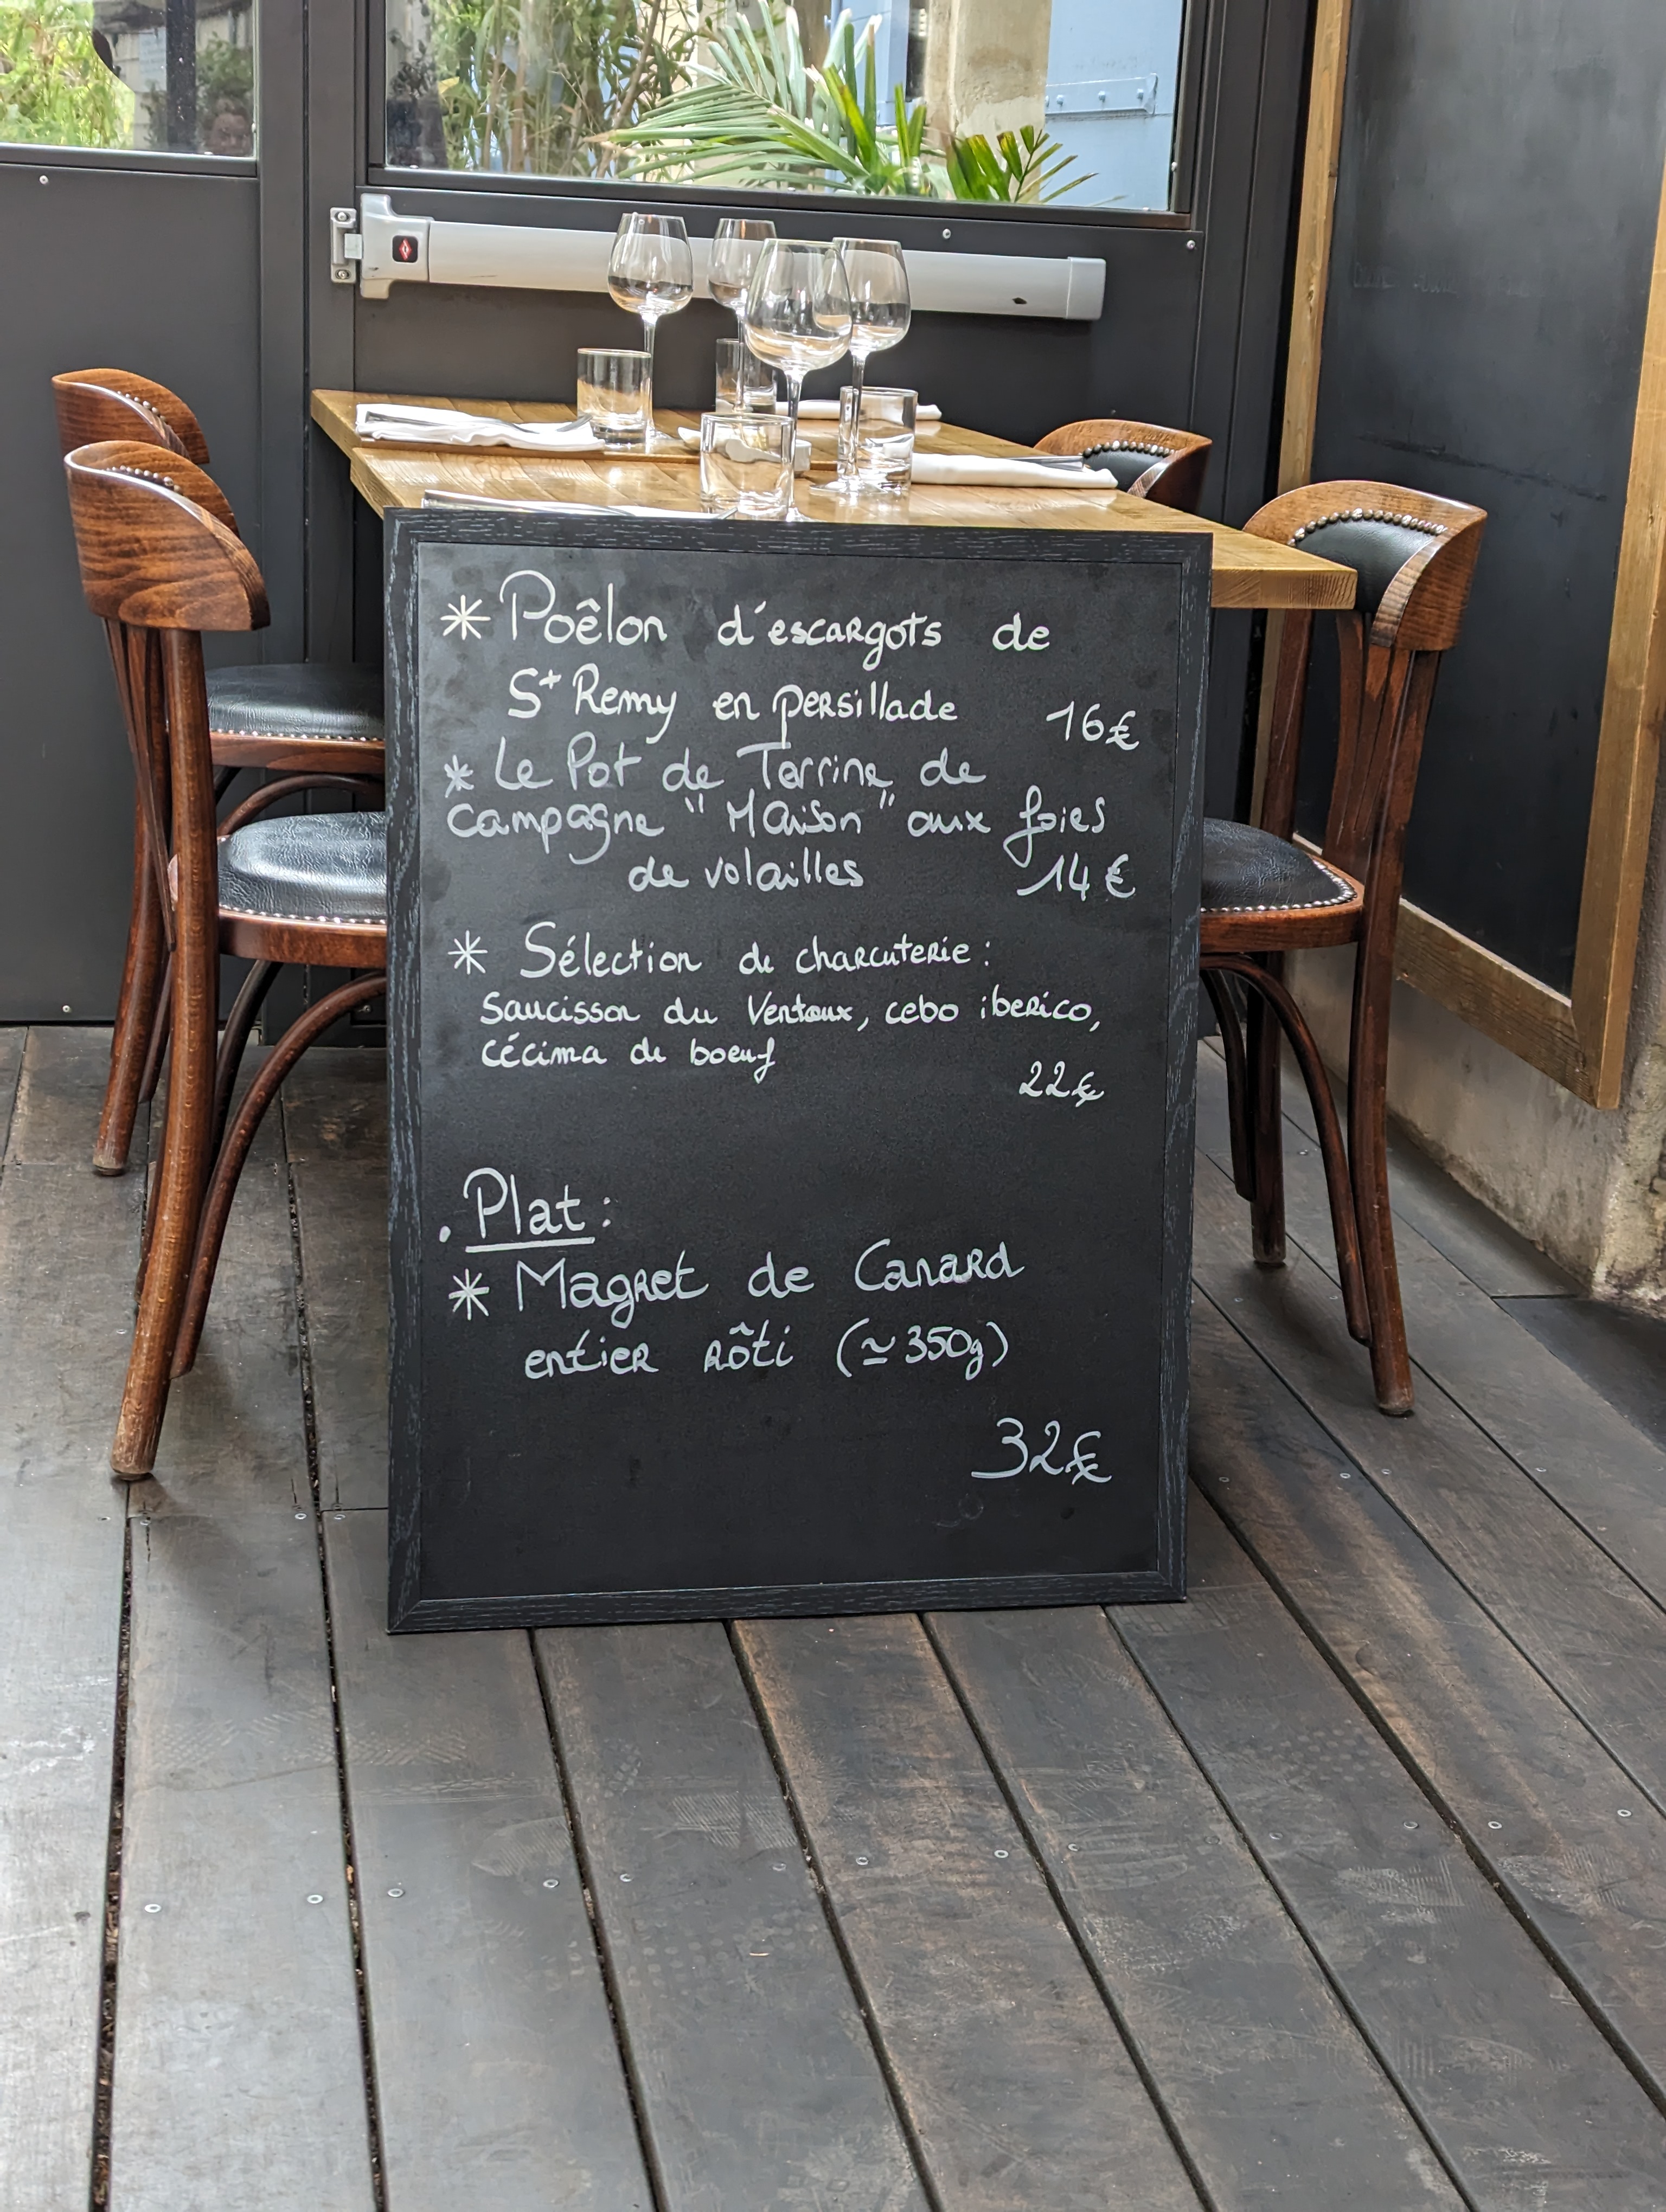 * Poêlon d'escargots de
St Remy en persillade 16€
* Le Pot de Terrine de
campagne "Maison" aux foies
de volailles 14€
* Sélection de charcuterie :
Saucisson du Ventoux, cebo iberico,
cécima de boeuf
22€
. Plat :
* Magret de Canard
entier rôti (≃350g)
32€